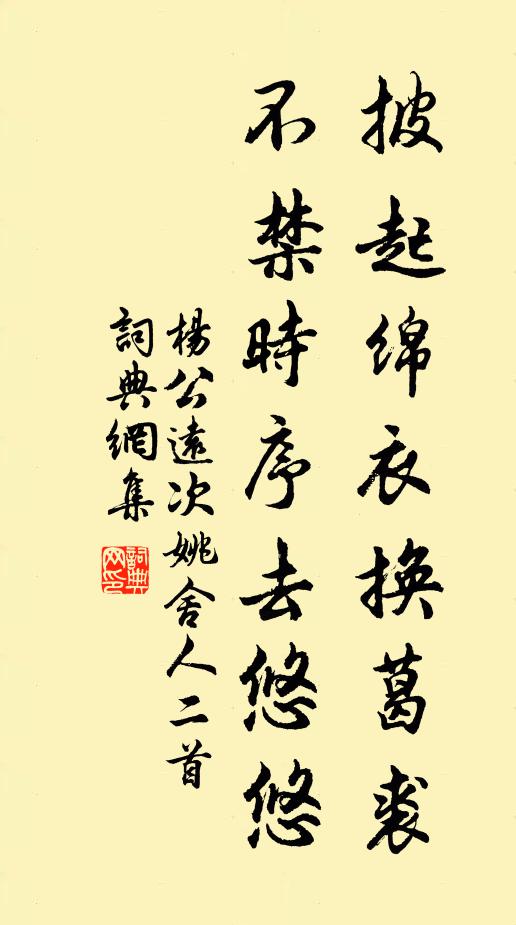 披起绵衣換葛裘
不禁時序去悠悠
楊公遠次姚舍人二首
詞典網集
詞典网印